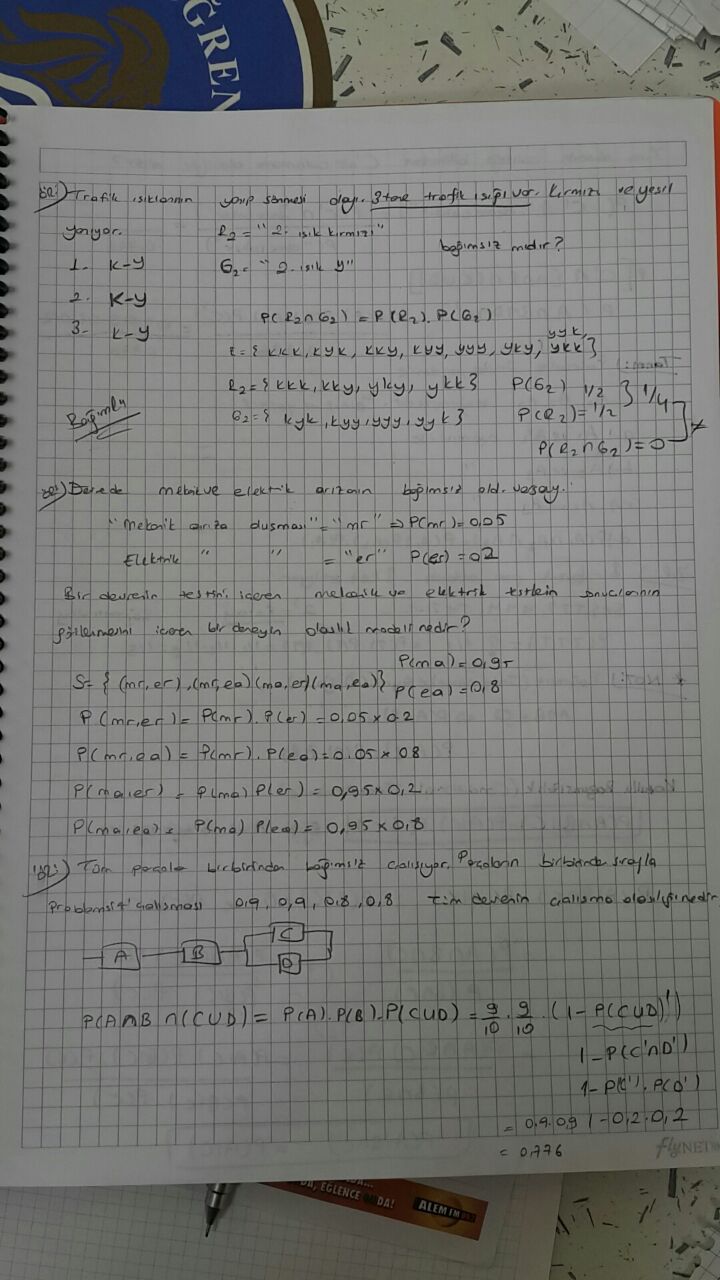 ĞREN
ör:) Trafik ışıklarının yanıp sönmesi olayı. 3 tane trafik ışığı var. Kırmızı ve yeşil
yanıyor.
R₂ = "2. ışık kırmızı"
bağımsız mıdır?
1- K-Y
G₂ = "2. ışık y"
2. K-Y
3- K-Y
P(R₂∩G₂) = P(R₂).P(G₂)
yyk,
= { kkk, kyk, kky, kyy, yyy, yky, ykk }
R₂ = { kkk, kky, yky, ykk }
P(G₂) 1/2
} 1/4
Bağımlı
G₂ = { kyk, kyy, yyy, yyk }
P(R₂) = 1/2
≠
P(R₂∩G₂) = 0
ör:) Devrede mekanik ve elektrik arızanın bağımsız old. varsay.
"Mekanik arıza olmaması" = "mr" ⇒ P(mr) = 0,05
Elektrik " " = "er" P(er) = 0,2
Bir devrenin testini içeren mekanik ve elektrik testlein sonuçlarının
gözlenmesini içeren bir deneyin olasılık modeli nedir?
P(ma) = 0,95
S = { (mr,er), (mr,ea) (ma,er) (ma,ea) } P(ea) = 0,8
P(mr,er) = P(mr).P(er) = 0,05 x 0.2
P(mr,ea) = P(mr).P(ea) = 0.05 x 08
P(ma,er) = P(ma) P(er) = 0,95 x 0,2
P(ma,ea) = P(ma) P(ea) = 0,95 x 0,8
ör:) Tüm parçalar birbirinden bağımsız çalışıyor. Parçaların birbirinde sırayla
problemsiz çalışması 0,9, 0,9, 0,8, 0,8 tüm devrenin çalışma olasılığı nedir
C
A
B
D
P(A∩B∩(C∪D) = P(A).P(B).P(C∪D) = 9/10 . 9/10 . (1-P(C∪D)')
1-P(C'∩D')
1-P(C').P(D')
= 0,9.0,9 1-0,2.0,2
= 0,776
flyNET
DA, EĞLENCE DA!
ALEM FM